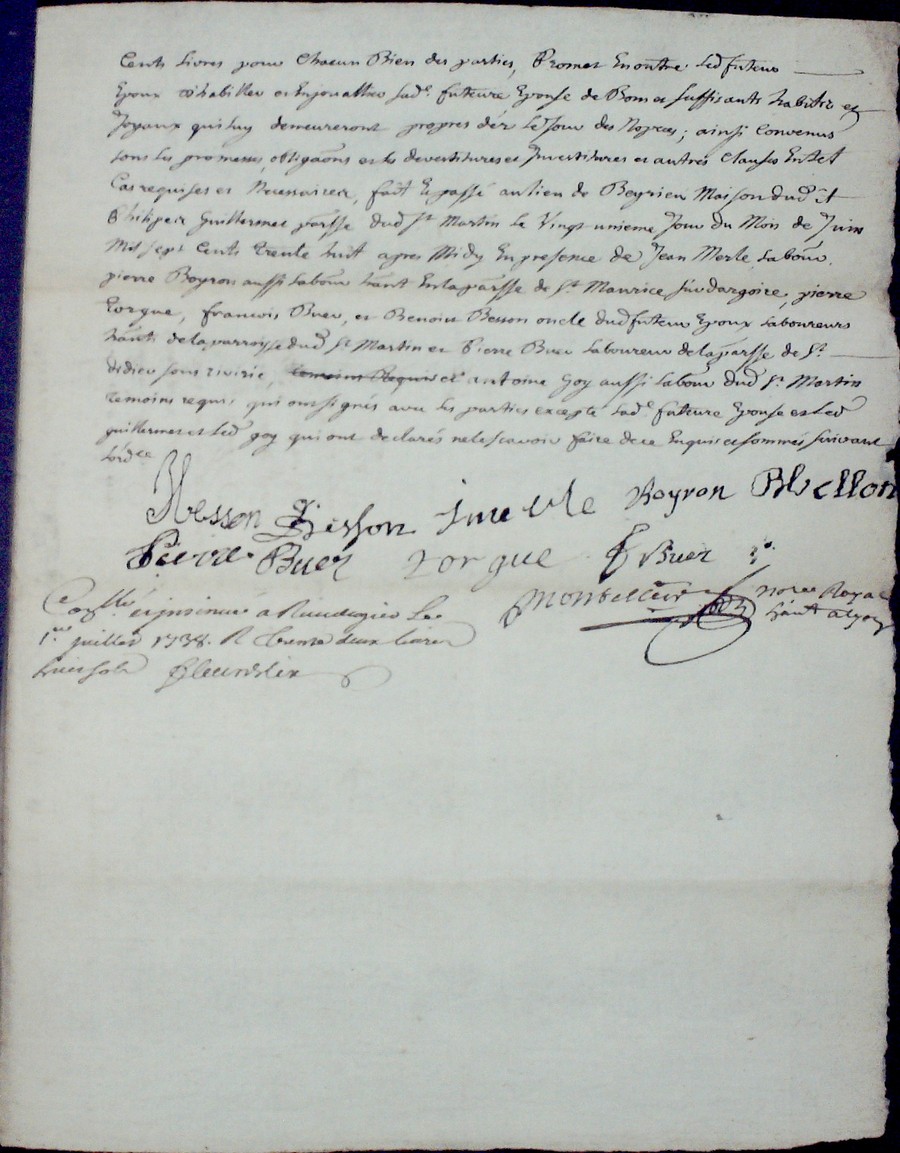 Cents livres pour Chacun Bien des parties, Promet En outre led futeur
Epoux d'habiller et Enjouailler lad.e future Epouse de Bons et suffisants habits et
Joyaux qui luy demeureront propres dez le Jour des Nopces; ainsi Convenus
sous les promesses, obligaons et les devertitures et Investitures et autres Clauses En tel
Cas requises et Necessaires, fait Et passé au lieu de Beyrieu Maison dud
Philiper Guillermet parsse dud St Martin le Vingt unieme Jour du Mois de Juin
Mil sept Cents trente huit apres Midy En presence de Jean Merle Labour.
pierre Boyron aussi Labour hant En la parsse de St Maurice sur dargoire, pierre
Torgue, francois Buer, et Benoist Besson oncle dud futeur Epoux Laboureurs
hants de la parroisse dud St Martin et Pierre Buer Laboureur de la parsse de St
didier sous rivirie, temoins Requis et antoine Goy aussi Labour dud St Martin
temoins requis qui ont signés avec les parties excepté lad.e future Epouse et led
guillermet et led goy qui ont declarés ne le scavoir faire de ce Enquis et sommés suivant
lord.ce
Besson Besson J merle Boyron
Pierre Buer Torgue F Buer
not.re Royal
hant a
Con.llé et insinué a le
1.er juillet 1738. R trente deux livres
huit sols